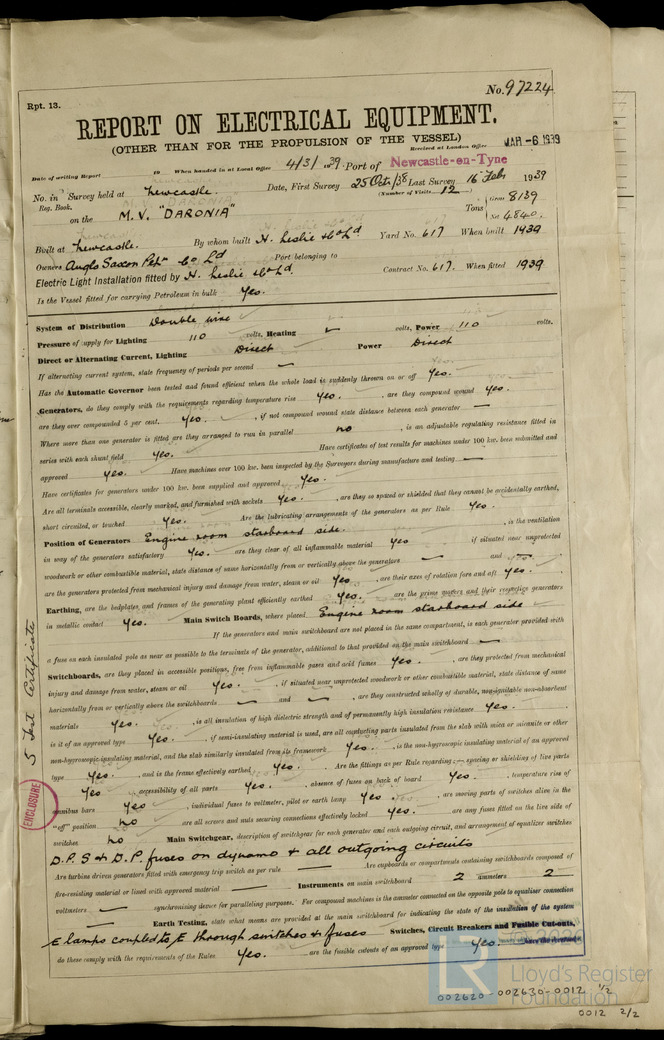 No. 97224
Rpt. 13.
REPORT ON ELECTRICAL EQUIPMENT.
(OTHER THAN FOR THE PROPULSION OF THE VESSEL)
Received at London Office MAR -6 1939
Date of writing Report 19 When handed in at Local Office 4/3/1939 Port of Newcastle-on-Tyne
No. in Survey held at Newcastle. Date, First Survey 25 Oct/38 Last Survey 16 Feb 1939
Reg. Book. (Number of Visits 12)
on the M.V. "DARONIA" Tons { Gross 8139
Net 4840.
Built at Newcastle. By whom built H. Leslie & Co Ld Yard No. 617 When built 1939
Owners Anglo Saxon Petm Co Ld Port belonging to
Electric Light Installation fitted by H. Leslie & Co Ld. Contract No. 617. When fitted 1939
Is the Vessel fitted for carrying Petroleum in bulk Yes.
System of Distribution Double wire
Pressure of supply for Lighting 110 volts, Heating volts, Power 110 volts.
Direct or Alternating Current, Lighting Direct Power Direct
If alternating current system, state frequency of periods per second —
Has the Automatic Governor been tested and found efficient when the whole load is suddenly thrown on or off Yes.
Generators, do they comply with the requirements regarding temperature rise Yes. , are they compound wound Yes.
are they over compounded 5 per cent. Yes. , if not compound wound state distance between each generator —
Where more than one generator is fitted are they arranged to run in parallel no , is an adjustable regulating resistance fitted in
series with each shunt field Yes. Have certificates of test results for machines under 100 kw. been submitted and
approved Yes. Have machines over 100 kw. been inspected by the Surveyors during manufacture and testing —
Have certificates for generators under 100 kw. been supplied and approved Yes.
Are all terminals accessible, clearly marked, and furnished with sockets Yes. , are they so spaced or shielded that they cannot be accidentally earthed,
short circuited, or touched Yes. Are the lubricating arrangements of the generators as per Rule Yes.
Position of Generators Engine room starboard side. , is the ventilation
in way of the generators satisfactory Yes. are they clear of all inflammable material Yes if situated near unprotected
woodwork or other combustible material, state distance of same horizontally from or vertically above the generators — and —
are the generators protected from mechanical injury and damage from water, steam or oil Yes , are their axes of rotation fore and aft Yes.
Earthing, are the bedplates and frames of the generating plant efficiently earthed Yes. are the prime movers and their respective generators
in metallic contact Yes. Main Switch Boards, where placed Engine room starboard side
If the generators and main switchboard are not placed in the same compartment, is each generator provided with
a fuse on each insulated pole as near as possible to the terminals of the generator, additional to that provided on the main switchboard —
Switchboards, are they placed in accessible positions, free from inflammable gases and acid fumes Yes. , are they protected from mechanical
injury and damage from water, steam or oil Yes. , if situated near unprotected woodwork or other combustible material, state distance of same
horizontally from or vertically above the switchboards — and — , are they constructed wholly of durable, non-ignitable non-absorbent
materials Yes. , is all insulation of high dielectric strength and of permanently high insulation resistance Yes.
is it of an approved type Yes. , if semi-insulating material is used, are all conducting parts insulated from the slab with mica or micanite or other
non-hygroscopic insulating material, and the slab similarly insulated from its framework Yes. , is the non-hygroscopic insulating material of an approved
type Yes. , and is the frame effectively earthed Yes. Are the fittings as per Rule regarding:— spacing or shielding of live parts
Yes , accessibility of all parts Yes. , absence of fuses on back of board Yes. , temperature rise of
omnibus bars Yes , individual fuses to voltmeter, pilot or earth lamp Yes. , are moving parts of switches alive in the
"off" position no are all screws and nuts securing connections effectively locked Yes. , are any fuses fitted on the live side of
switches no Main Switchgear, description of switchgear for each generator and each outgoing circuit, and arrangement of equaliser switches
D.P. S & D.P. fuses on dynamo & all outgoing circuits
Are turbine driven generators fitted with emergency trip switch as per rule — Are cupboards or compartments containing switchboards composed of
fire-resisting material or lined with approved material — Instruments on main switchboard 2 ammeters 2
voltmeters — synchronising device for paralleling purposes. For compound machines is the ammeter connected on the opposite pole to equaliser connection
— Earth Testing, state what means are provided at the main switchboard for indicating the state of the insulation of the system
E lamps coupled to E through switches & fuses Switches, Circuit Breakers and Fusible Cut-outs,
do these comply with the requirements of the Rules Yes. are the fusible cutouts of an approved type Yes.
5 Test Certificate
ENCLOSURE
© 2020
LR
Lloyd's Register
Foundation
002620-002630-0012 1/2
0012 2/2